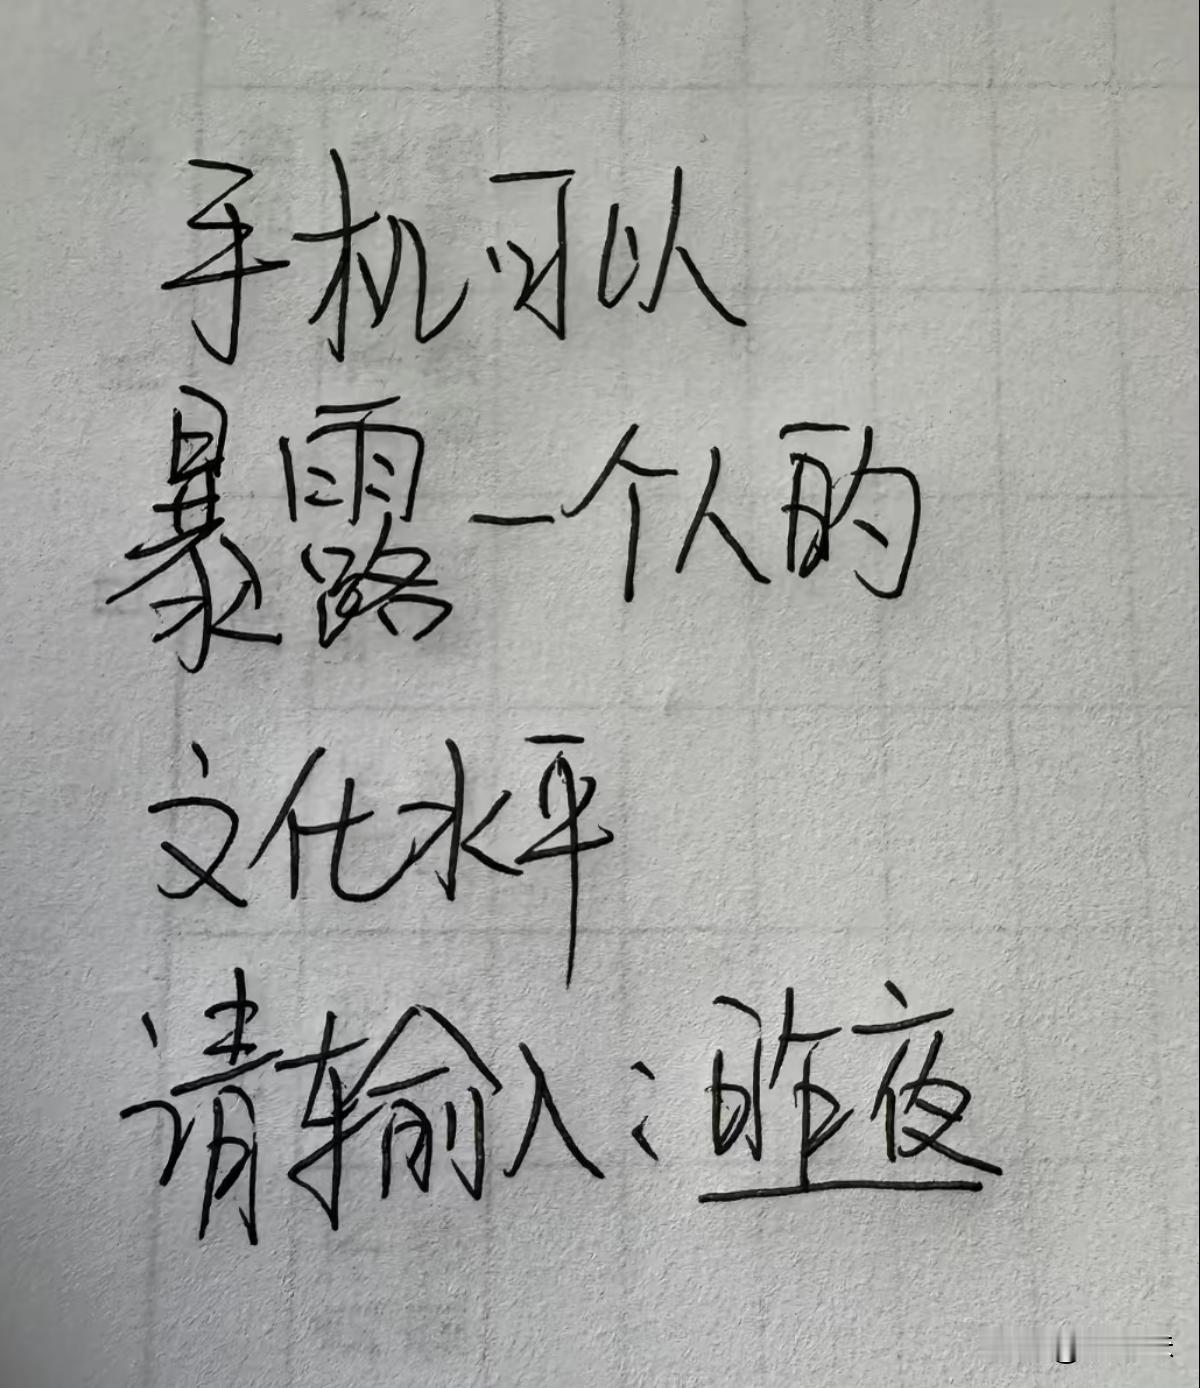 手机可以
暴露一个人的
文化水平
请输入：昨夜